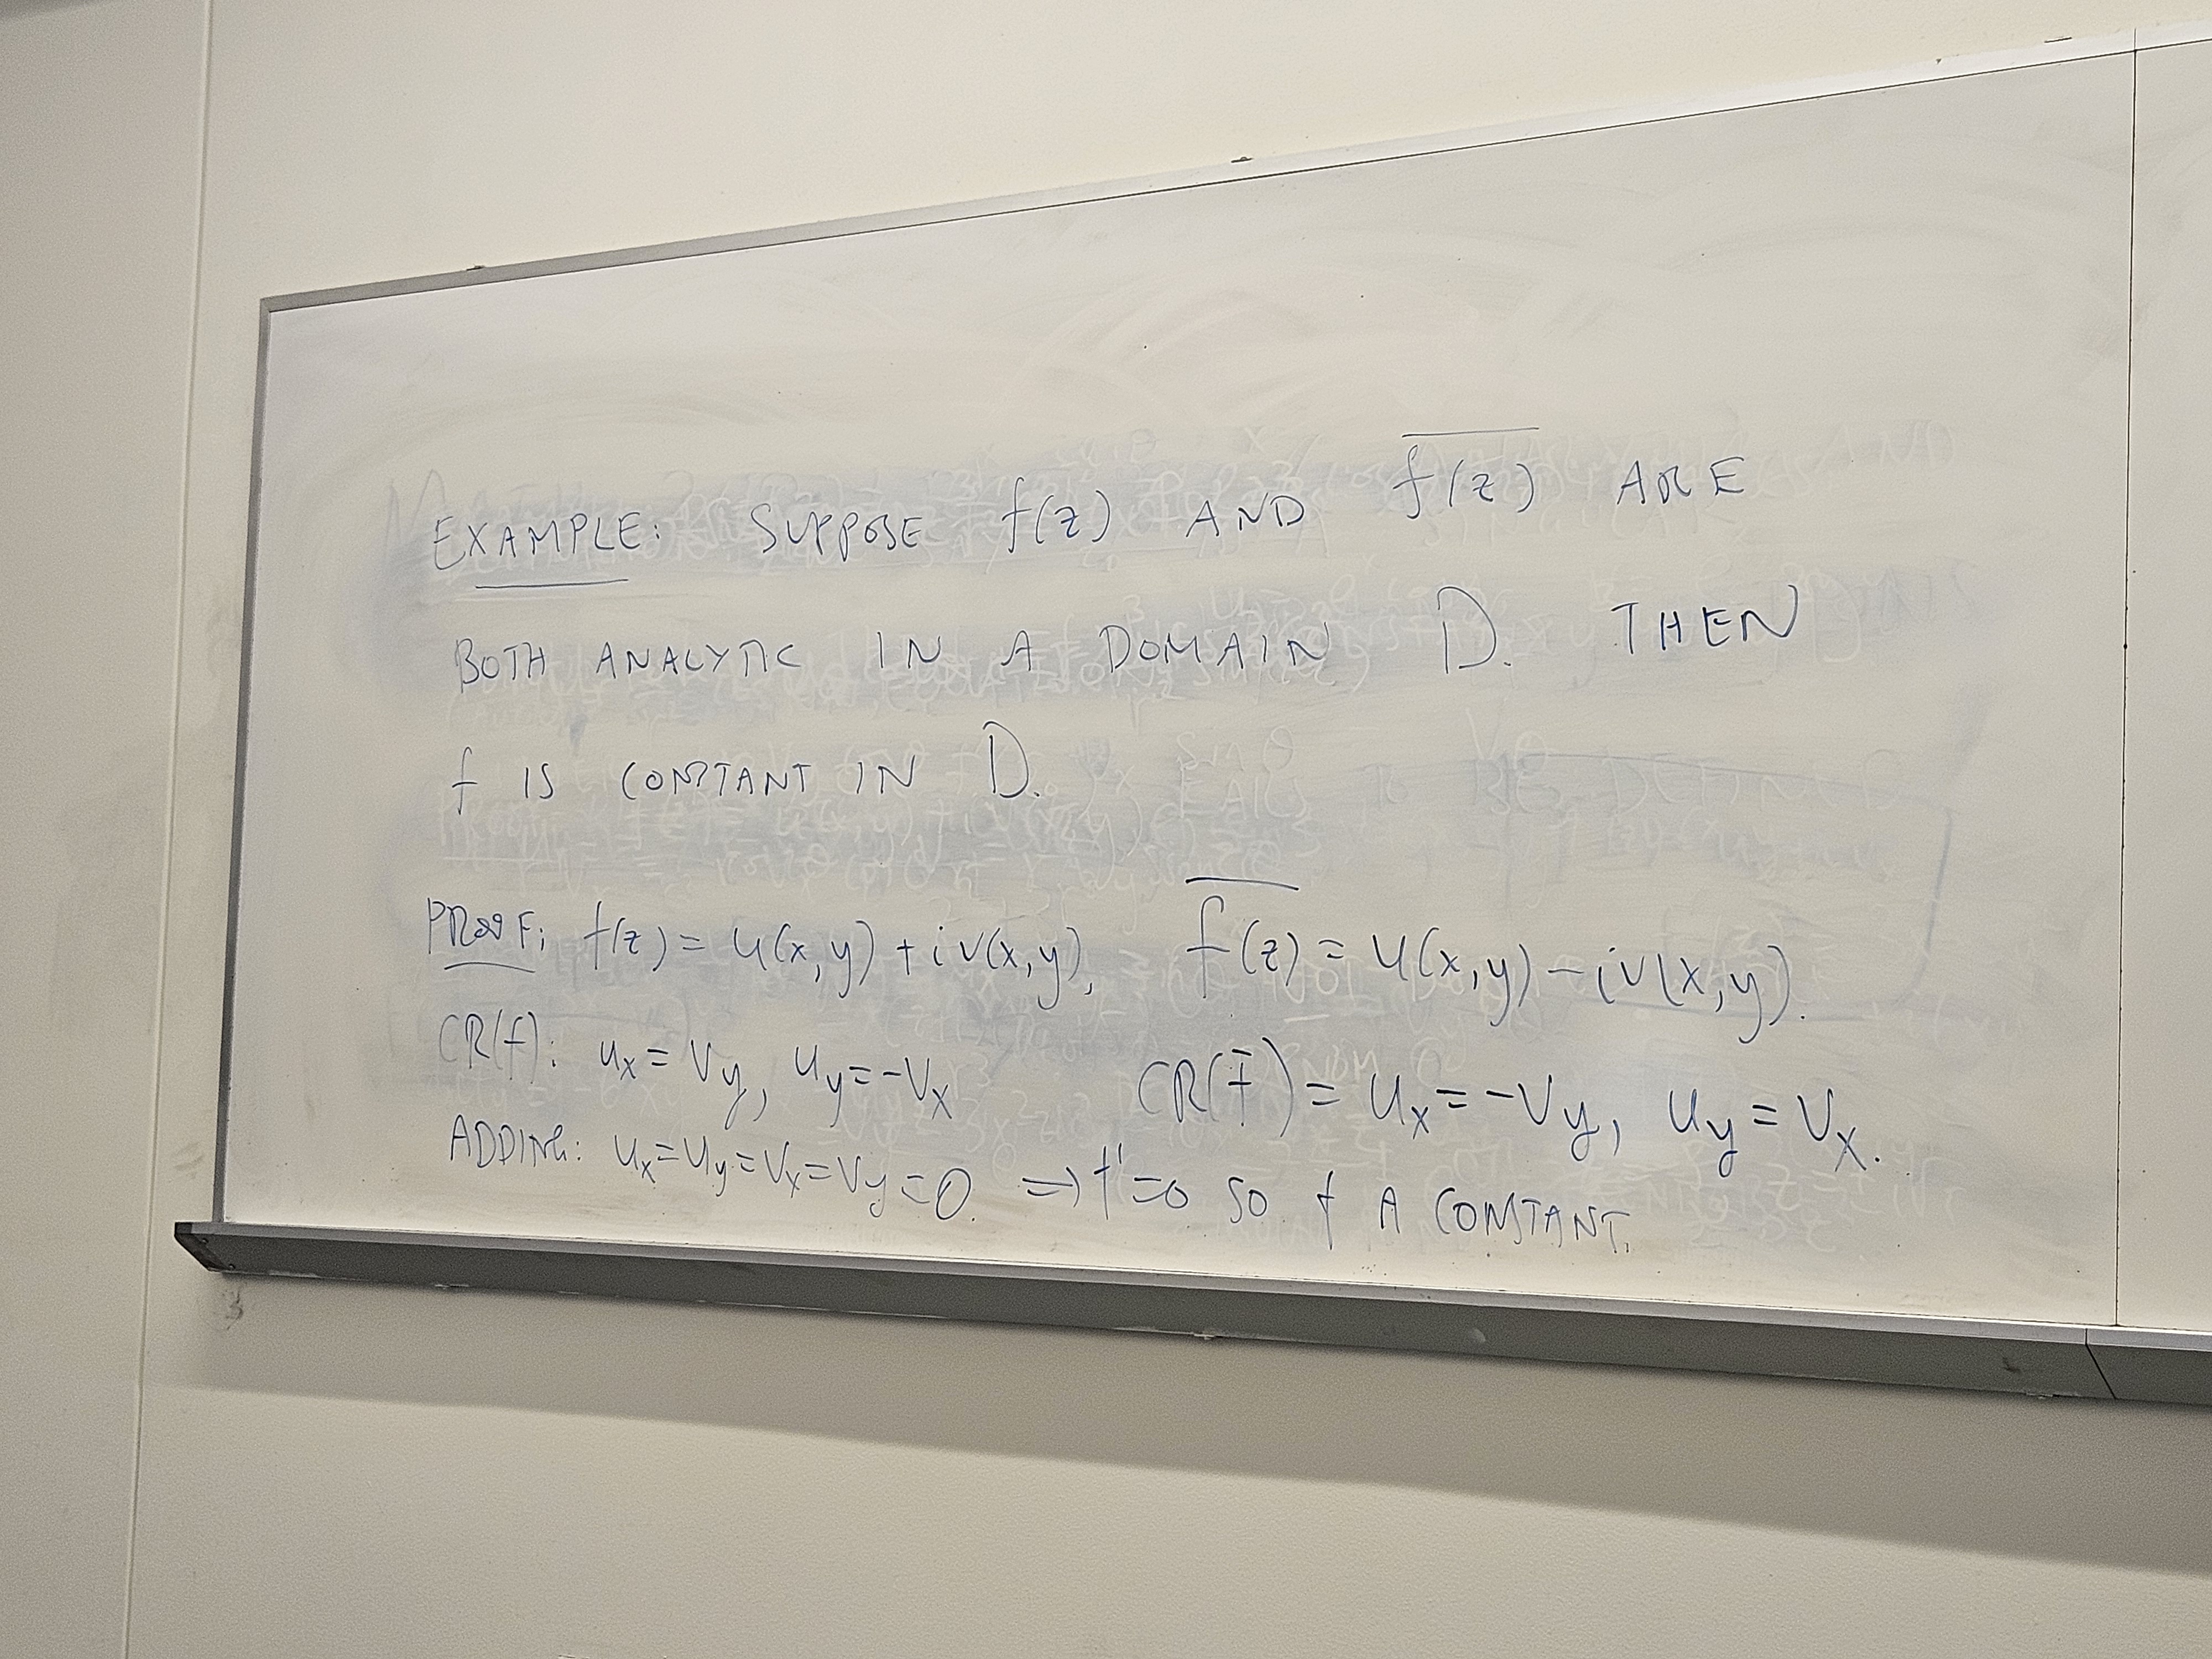 EXAMPLE: SUPPOSE f(z) AND \overline{f(z)} ARE
BOTH ANALYTIC IN A DOMAIN D. THEN
f IS CONSTANT IN D.
PROOF: f(z) = u(x,y) + iv(x,y), \overline{f(z)} = u(x,y) - iv(x,y).
CR(f): u_x = v_y, u_y = -v_x CR(\bar{f}) = u_x = -v_y, u_y = v_x.
ADDING: u_x = u_y = v_x = v_y = 0. ⇒ f' = 0 SO f A CONSTANT.